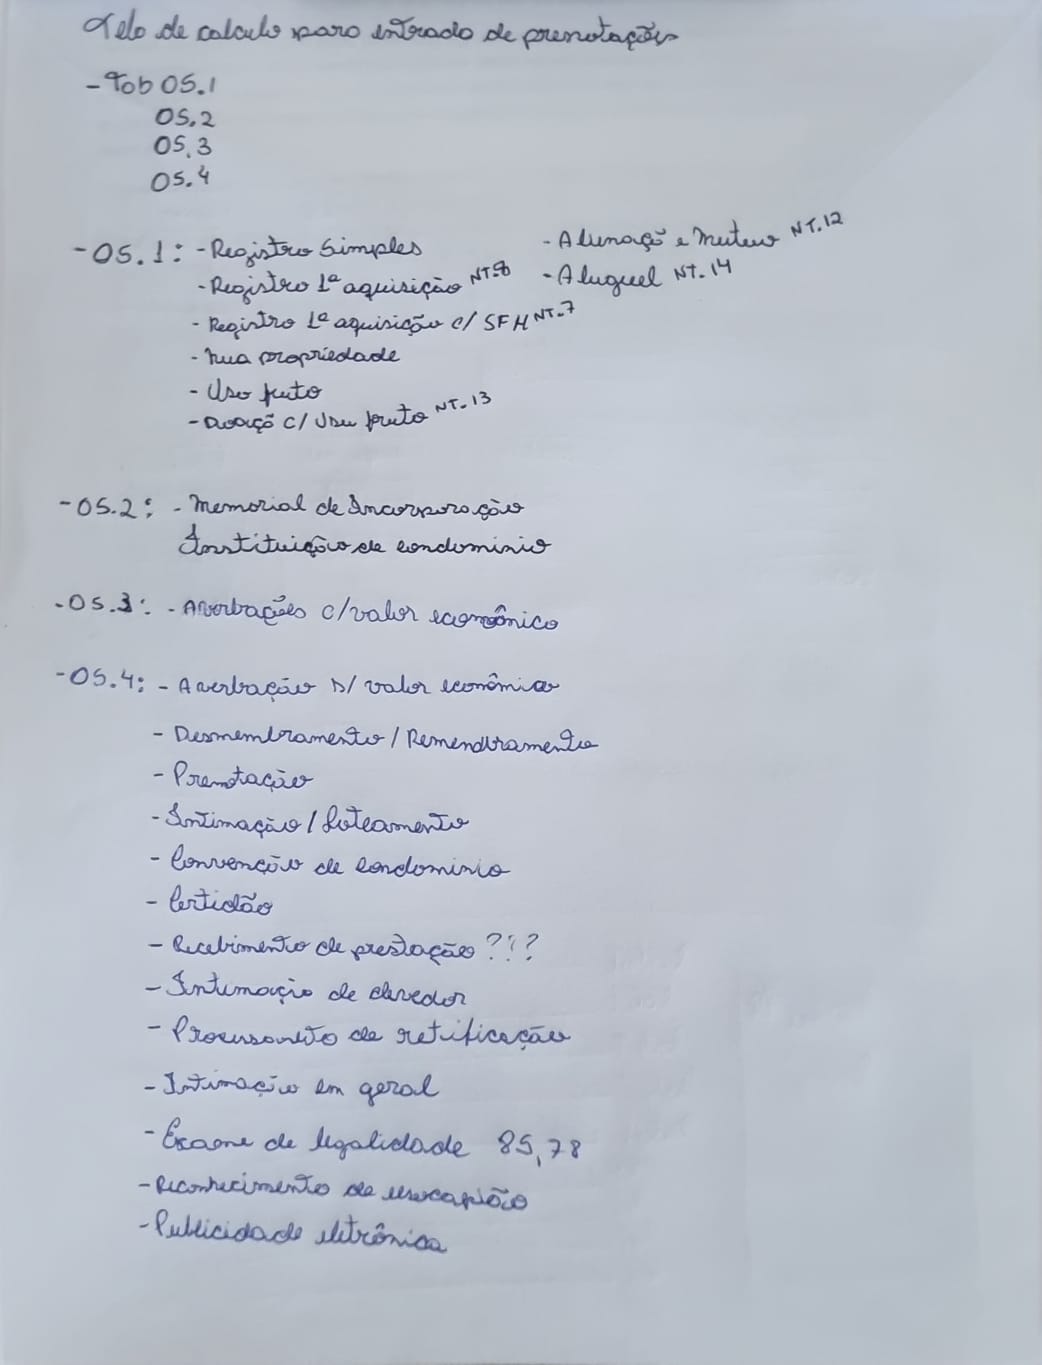 Tela de calculo para entrada de prenotações
- Tab OS.1
OS.2
OS.3
OS.4
- OS.1: - Registro Simples
- Registro 1ª aquisição NT.8
- Registro 1ª aquisição c/ SFH NT.7
- Nua propriedade
- Uso fruto
- Doaçõ c/ Usu fruto NT.13
- Alienação e Mutuo NT.12
- Aluguel NT.14
- OS.2: - Memorial de Incorporação
Instituição de condominio
- OS.3: - Averbações c/valor econômico
- OS.4: - Averbação s/ valor econômico
- Desmembramento / Remembramento
- Prenotação
- Intimação / Loteamento
- Convenção de Condominio
- Certidão
- Recebimento de prestação ???
- Intimação de devedor
- de retificação
- Intimação em geral
- Exame de legalidade 85,78
- Reconhecimento de usucapião
- Publicidade eletrônica